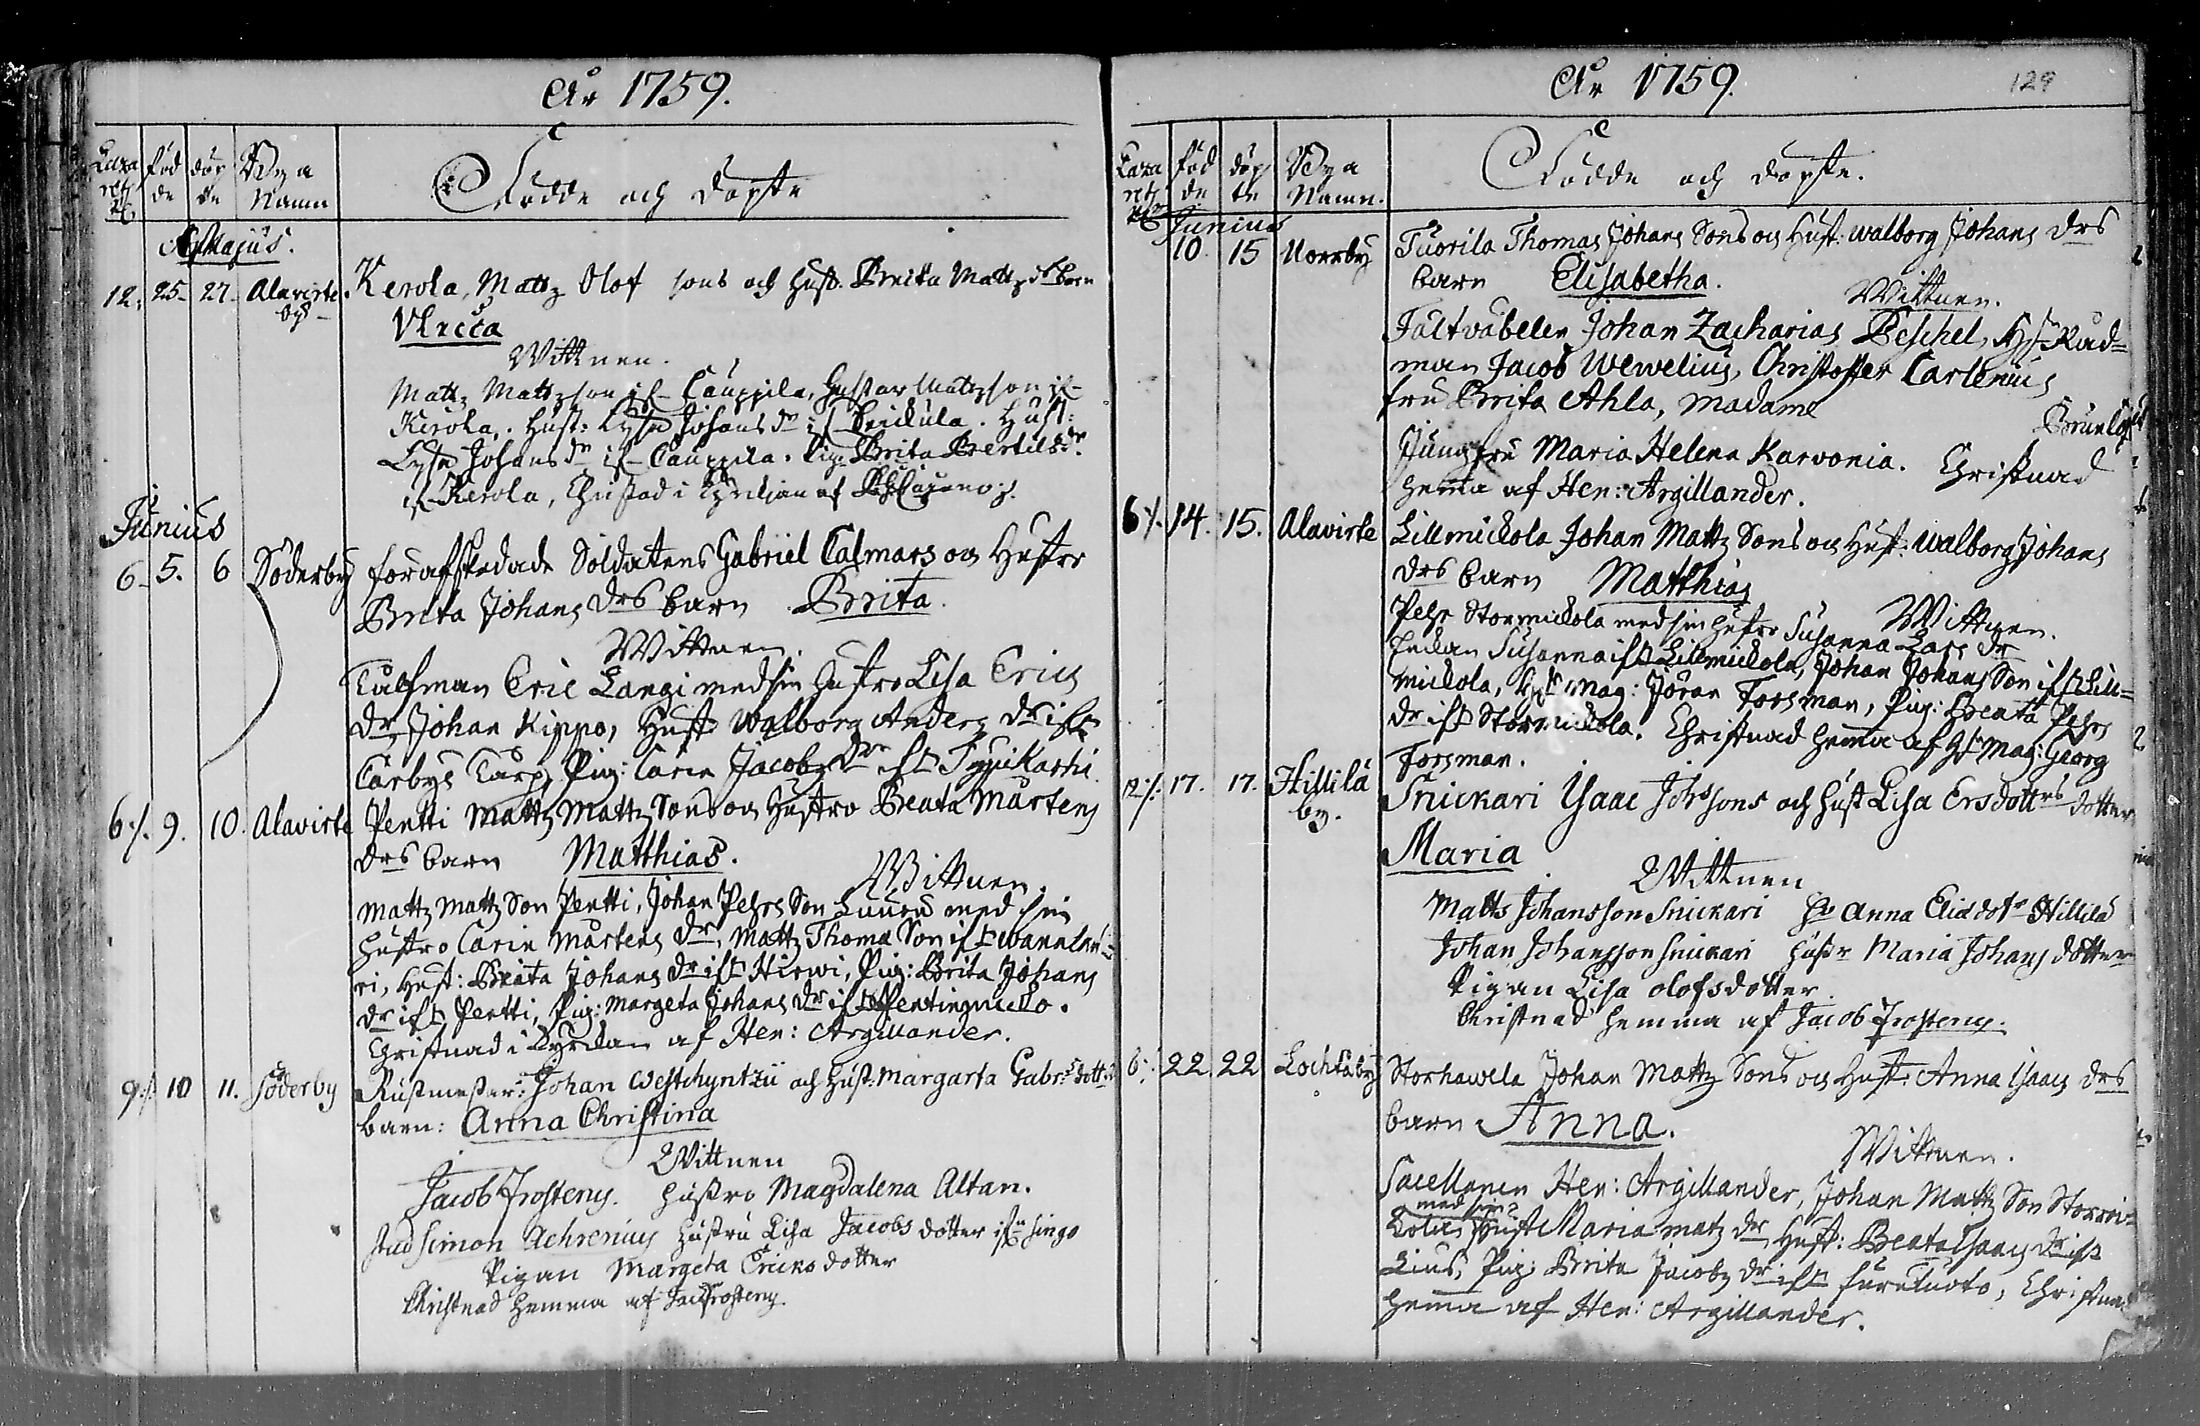 År 1759.
Laza
rets
födde
döpte
Bya
Namn
Födde och döpte
Majus.
12. 25. 27. Alavirte by Kerola, Mattz Olof sons och hust. Brita Mattz dr barn
Ulrica
Wittnen.
Mattz Mattzson ifr. Cauppila, Gustav Matzson ifr.
Kerola, hust: Lysa Johans dr ifr. . Hust:
Lysa Johans dr ifr. Cauppila. Pig. Brita Bertils dr.
ifr. Kerola, Christnad i Kyrkian af
Junius
6. 5. 6 Söderby förafskedade Soldatens Gabriel Calmars och Hustro
Brita Johans drs barn Brita.
Wittnen.
Eric Langi med sin hustro Lisa Erics
dr, Johan Kippo, Hust. Walborg Anders dr ifr.
Carbys Carp, Pig: Carin Jacobz dr ifrn
6 ./. 9. 10. Alavirte Pentti Mattz Mattz Sons och Hustro Beata Mårtens
drs barn Matthias.
Wittnen.
Mattz Mattz Son Pentti, Johan Pehrs Son med sin
hustro Carin Mårtens dr, Mattz Thomæ Son ifrn
ri, Hust: Beata Johans dr ifrn Hirwi, Pig: Brita Johans
dr ifrn Pentti, Pig: Margeta Johans dr ifrn Pentingmicko.
Christnad i Kyrckan af Hen: Argillander.
9 ./. 10 11. Söderby Rustmester: Johan Westchyntzii och Hust: Margarta Gabr:s dott:s
barn: Anna Christina
Wittnen
Jacob Frosterus. hustro Magdalena Altan.
Stud Simon Achrenius hustru Lisa Jacobs dotter ifrn Singo
Pigan Margeta Ericksdotter
Christnad hemma af Jac: Frosterus.
År 1759.
129
Laza
rets
födde
döpte
Bya
Namn.
Födde och döpte.
Junius
10. 15 Norrby Tuorila Thomas Johans Sons och Hust: Walborg Johans drs
barn Elisabetha.
Wittnen.
Fältväbelen Johan Zacharias Peschel, H:r Råd=
man Jacob Wewelius, Christoffer Carlenius
fru Brita Ahla, Madame
Jungfru Maria Helena Karvonia. Christnad
hemma af Hen: Argillander.
6 ./. 14. 15. Alavirte Lillmickola Johan Mattz Sons och Hust: Walborg Johans
drs barn Matthias
Wittnen.
Pehr Stormickola med sin hustro Susanna Lars dr
Enckan Susanna ifrn Lillmickola, Johan Johans Son ifrn Lill=
mickola, H:r Mag: Jöran Forsman, Pig: Beata Pehrs
dr ifrn Stormickola. Christnad hemma af H:r Mag: Georg
Forsman.
12 ./. 17. 17. Hillilä by. Snickari Isaac Johssons och hust Lisa Ersdotters dotter
Maria
Wittnen
Matts Johansson Snickari H: Anna Eliæ dotr Hillilä
Johan Johansson Snickari hustr Maria Johans dotter
Pigan Lisa Olofsdotter
Christnad hemma af Jacob Frosterus.
6 ./. 22. 22 Lochtåby Storhawela Johan Mattz Sons och Hust: Anna Isaacs drs
barn Anna.
Wittnen.
Sacellanen Hen: Argillander, Johan Mattz Son
med sin
Hust Maria Matz dr, Hust: Beata Isaacs dr ifrn
Pig: Brita Jacobz dr ifrn , Christnad
hemma af Hen: Argillander.